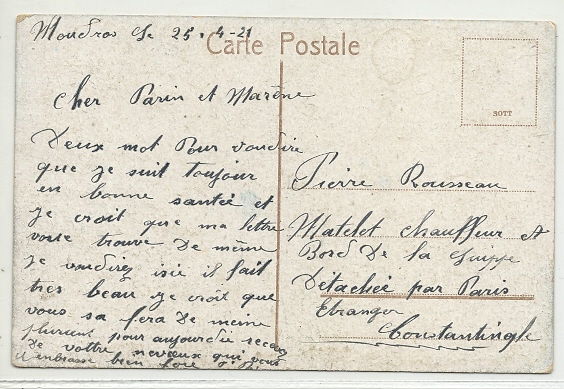 Moudros le 25-4-21
Carte Postale
SOTT
Cher Parin et Marène
Deux mot Pour voudire
que je suit toujour
en bonne santée et
je croit que ma lettre
vous trouve De même
je voudirez isie il fait
tres beau je croit que
vous sa fera De meine
plusieur pour aujourdie
De vottre neveux qui vous
embrasse bien fore
Pierre Rousseau
Matelot chauffeur et
Bord De la Guippe
Détachée par Paris
Etranger
Constantinople